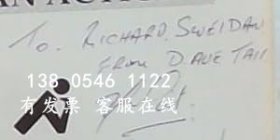 AN ACTION
To. RICHARD. SWEIDAN
FROM DAVE TAIT
138 0546 1122
有发票 客服在线